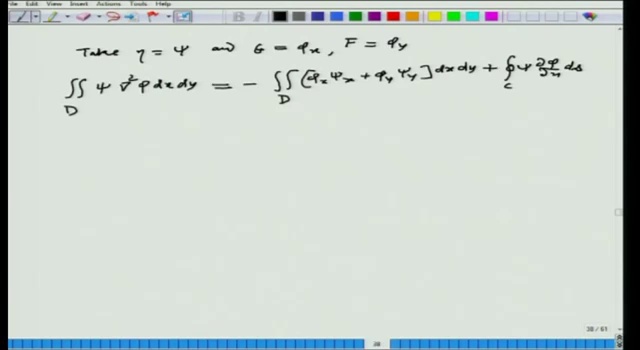 File Edit View Insert Actions Tools Help
Take η = Ψ and G = φ_x, F = φ_y
∬_D Ψ ∇²φ dx dy = - ∬_D [φ_x Ψ_x + φ_y Ψ_y] dx dy + ∮_C Ψ ∂φ/∂n ds
38 / 61
38